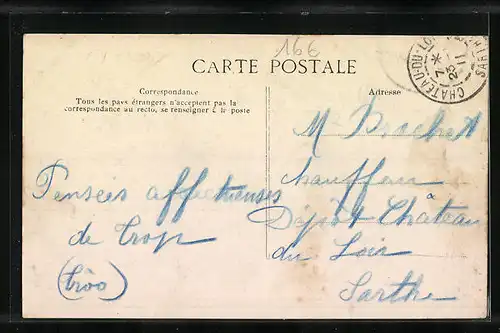 166
CARTE POSTALE
CHATEAU-DU-LOIR
7 *
25
11
SARTHE
Correspondance
Tous les pays étrangers n'acceptent pas la
correspondance au recto, se renseigner à la poste
Adresse
Pensées affectueuses
de Troo
(Trôo)
M
chauffeur
Dépôt Château
du Loir
Sarthe